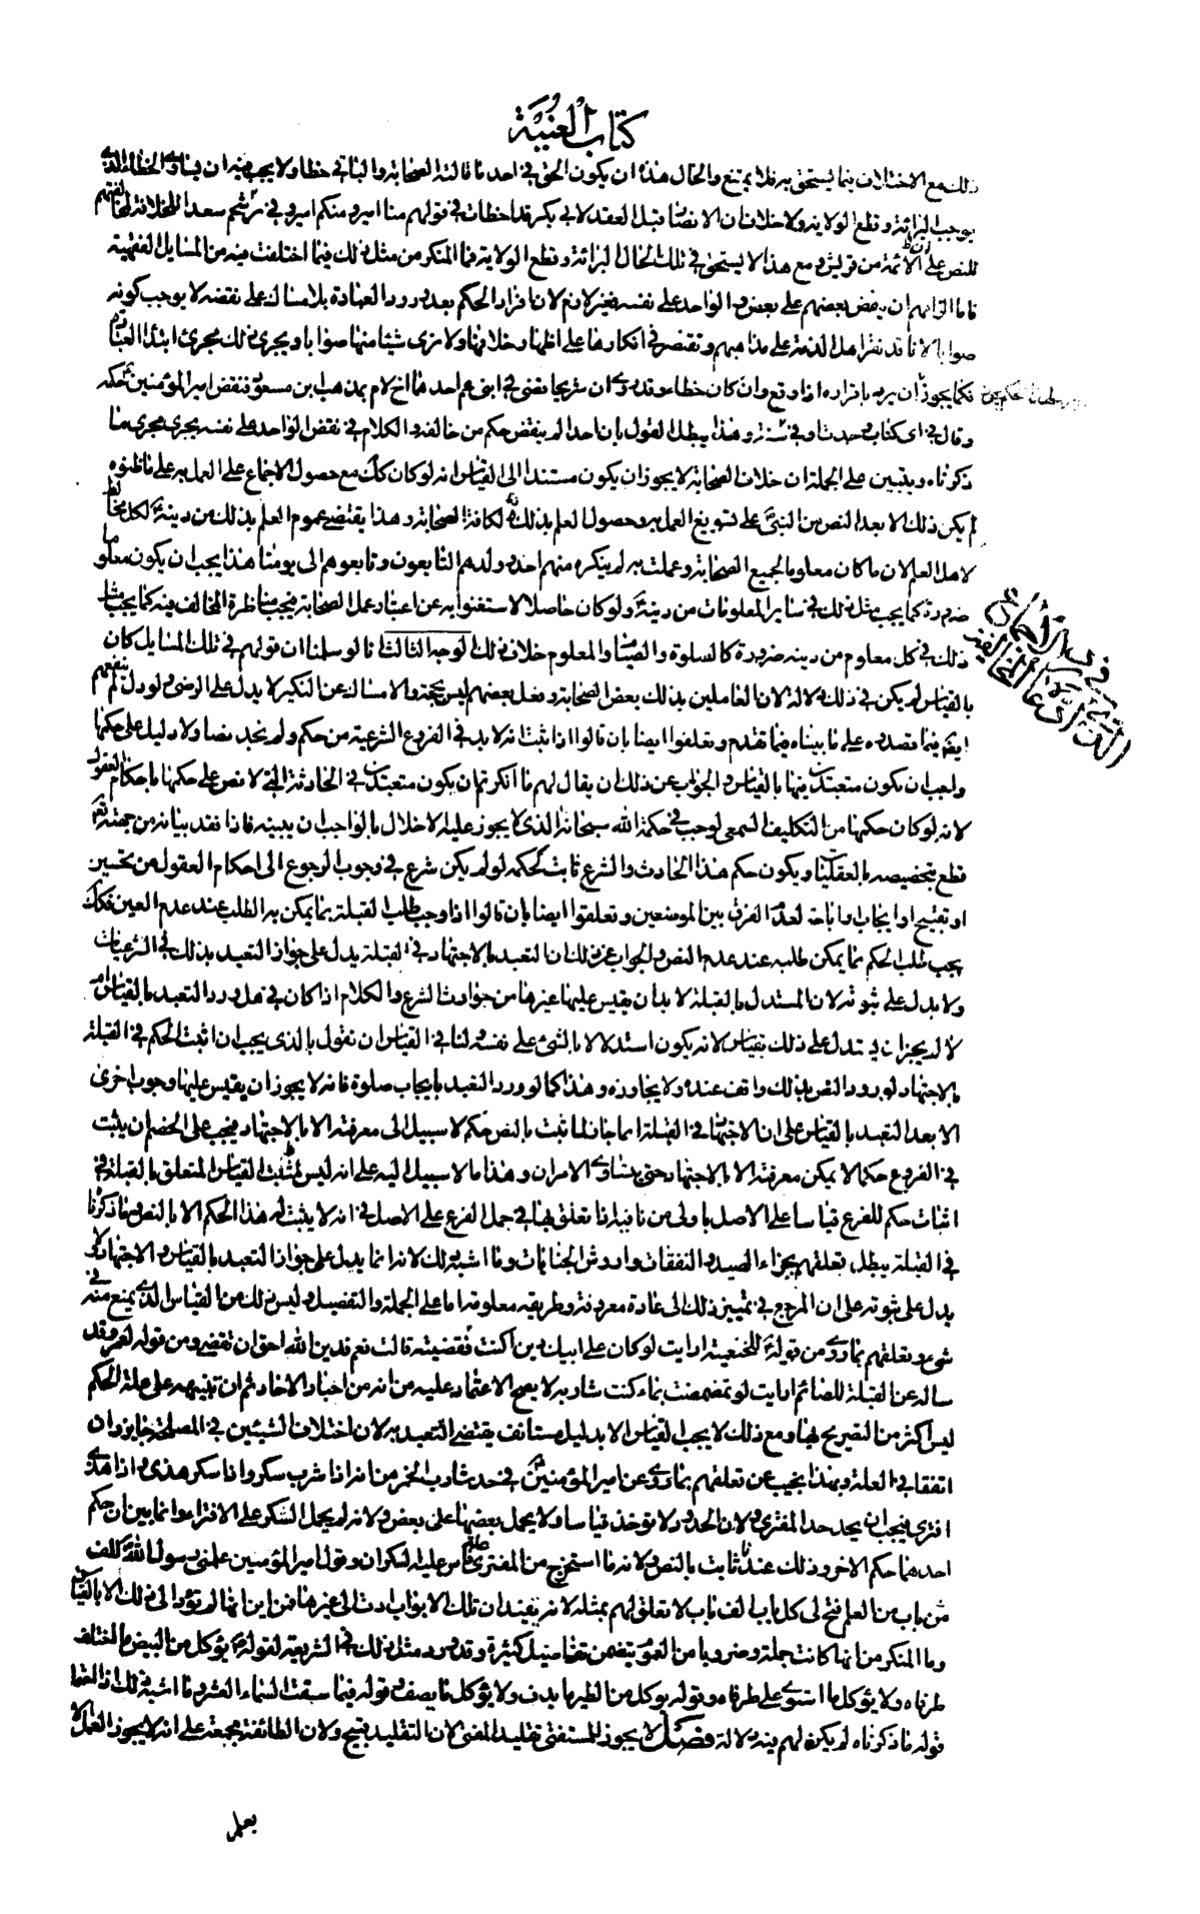 كتاب الغنية
ذلك مع الاختلاف فيما يستحق به فلا يمتنع والحال هذه ان يكون الحق في احد ما قالته الصحابة والباقي خطا ولا يجب فيه ان يساوي الخطاء الذي
يوجب البرائة وقطع الولاية ولا خلاف ان الانصار قبل العقد لابي بكر قد اخطات في قولهم منا امير ومنكم امير وفي ترشحهم سعدا للخلافة لمخالفتهم
للنص على ان الائمة من قريش ومع هذا لا يستحق في تلك الحال البرائة وقطع الولاية فما المنكر من مثل ذلك فيما اختلفت فيه من المسايل الفقهية
فاما الزامهم ان ينقض بعضهم على بعض والواحد على نفسه فغير لازم لان اقرار الحكم بعد ورود العبادة بالامساك على نقضه لا يوجب كونه
صوابا لانا قد نقر اهل الذمة على مذاهبهم ونقتصر في انكارها على اظهار خلافها ولا نرى شيئا منها صوابا ويجري ذلك مجرى ابتداء العبادة
فكما يجوز ان يرد باقراره اذا وقع وان كان خطاء وقد روي ان شريحا قضى في ابني عم احدهما اخ لام بمذهب ابن مسعود فنقض امير المؤمنين ع حكمه
وقال في اي كتاب وجدت او في سنة وهذا يبطل القول بان احدا لم ينقض حكم من خالفه والكلام في نقض الواحد على نفسه يجري مجرى ما
ذكرناه ويتبين على الجملة ان خلاف الصحابة لا يجوز ان يكون مستندا الى القياس انه لو كان كذلك مع حصول الاجماع على العمل به على ما ظنوه
لم يكن ذلك الا بعد النص من النبي ص على تسويغ العمل به وحصول العلم بذلك لكافة الصحابة وهذا يقتضي عموم العلم بذلك من دينه ص لكل مخالط
لاهل العلم لان ما كان معلوما لجميع الصحابة وعملت به لم ينكره منهم احد ولدهم التابعون وتابعوهم الى يومنا هذا يجب ان يكون معلوما
ضرورة كما يجب مثل ذلك في ساير المعلومات من دينه ص ولو كان حاصلا لاستغنوا به عن اعتبار عمل الصحابة فيجب مناظرة المخالف فيه كما يجب مثل
ذلك في كل معلوم من دينه ضرورة كالصلوة والصيام والمعلوم خلاف ذلك الوجه الثالث انا لو سلمنا ان قولهم في تلك المسايل كان
بالقياس لم يكن في ذلك دلالة لان القاملين بذلك بعض الصحابة وفعل بعضهم ليس بحجة والامساك عن النكير لا يدل على الرضى ولو دل لم ينفعهم
فيما قصدوه على ما بيناه فيما تقدم وتعلقوا ايضا بان قالوا اذا ثبت انه لا بد في الفروع الشرعية من حكم ولم نجد نصا ولا دليل على حكمها
وجب ان نكون متعبدين فيها بالقياس والجواب عن ذلك ان يقال لهم ما انكرتم ان يكون متعبدين في الحادثة التي لا نص على حكمها باحكام العقول
لانه لو كان حكمها من التكليف السمعي لوجب في حكمة الله سبحانه الذي لا يجوز عليه الاخلال بالواجب ان يبينه فاذا فقد بيانه من جهته تعالى
قطع بتخصيصه بالعقليات ويكون حكم هذا الحادث والشرع ثابت كحكمه لو لم يكن شرع في وجوب الرجوع الى احكام العقول من تحسين
او تقبيح او ايجاب او اباحة لعدم الفرق بين الموضعين وتعلقوا ايضا بان قالوا اذا وجب طلب القبلة بما يمكن به الطلب عند عدم العين فكذلك
يجب طلب الحكم بما يمكن طلبه عند عدم النص والجواب عن ذلك ان التعبد بالاجتهاد في القبلة يدل على جواز التعبد بذلك في الشرعيات
ولا يدل على ثبوته لان المستدل بالقبلة لا بد ان يقيس عليها غيرها من حوادث الشرع والكلام اذا كان في هل ورد التعبد بالقياس ام
لا لم يجز ان يستدل على ذلك بقياس لانه يكون استدلالا بالشئ على نفسه ولنا في القياس ان نقول بالذي يجب ان اثبت الحكم في القبلة
بالاجتهاد لورود النص بذلك واقف عنده ولا يجاوزه وهذا كما لو ورد التعبد بايجاب صلوة فانه لا يجوز ان يقيس عليها وجوب اخرى
الا بعد التعبد بالقياس على ان الاجتهاد في القبلة انما جاز لما ثبت بالنص حكم لا سبيل الى معرفته الا بالاجتهاد فيجب على الخصم ان يثبت
في الفروع حكما لا يمكن معرفته الا بالاجتهاد حتى يتساوى الامران وهذا ما لا سبيل اليه على انه ليس لمثبت القياس المتعلق بالقبلة في
اثبات حكم للفرع قياسا على الاصل باولى من نافيه اذا تعلق بها في حمل الفرع على الاصل في انه لا يثبت له هذا الحكم الا بالنص وما ذكرناه
في القبلة يبطل تعلقهم بجزاء الصيد والنفقات واروش الجنايات وما اشبه ذلك لانه انما يدل على جواز التعبد بالقياس والاجتهاد لا
يدل على ثبوته على ان المرجع في تمييز ذلك الى عادة معروفة وطريقه معلومة اما على الجملة والتفصيل وليس ذلك من القياس الذي يمنع منه في
شئ وتعلقهم بما روي من قوله ص للخثعمية ارايت لو كان على ابيك دين اكنت تقضينه قالت نعم قال فدين الله احق ان تقضي ومن قوله لعمر وقد
ساله عن القبلة للصائم ارايت لو تمضمضت بماء كنت شاربه لا يصح الاعتماد عليه من انه من اخبار الاحاد ثم ان تنبيهه على علة الحكم
ليس اكثر من التصريح بها ومع ذلك لا يجب القياس الا بدليل مستانف يقتضي التعبد به لان اختلاف الشيئين في المصلحة جايز وان
اتفقا في العلة وبهذا يجيب عن تعلقهم بما روي عن امير المؤمنين ع في حد شارب الخمر من انه اذا شرب سكر واذا سكر هذى واذا هذى
افترى فيجب ان يحد حد المفتري ولان الحدود لا تؤخذ قياسا ولا يحمل بعضها على بعض ولانه لم يحمل السكر على الافتراء وانما بين ان حكم
احدهما حكم الاخر وذلك عندنا ثابت بالنص ولانه ما استخرج من المفتري علة قاس عليه السكران وقول امير المؤمنين علمني رسول الله ص الف
باب من العلم فتح لي كل باب الف باب لا تعلق لهم بمثله لانه يفيد ان تلك الابواب ادت الى غيرها فمن اين انها لم تؤد الى ذلك الا بالقياس
وما المنكر من انها كانت جملة وضروبا من العموم يتضمن تفاصيل كثيرة وقد ورد مثل ذلك في الشريعة لقوله ع يؤكل من البيض ما اختلف
طرفاه ولا يؤكل ما استوى طرفاه وقوله يؤكل من الطير ما يدف ولا يؤكل ما يصف وقوله فيما سقت السماء العشر وما اشبه ذلك
قوله ما ذكرناه لم يكن لهم فيه دلالة فصل لا يجوز للمستفتي تقليد المفتي لان التقليد قبيح ولان الطائفة مجمعة على انه لا يجوز العمل الا
بعلم